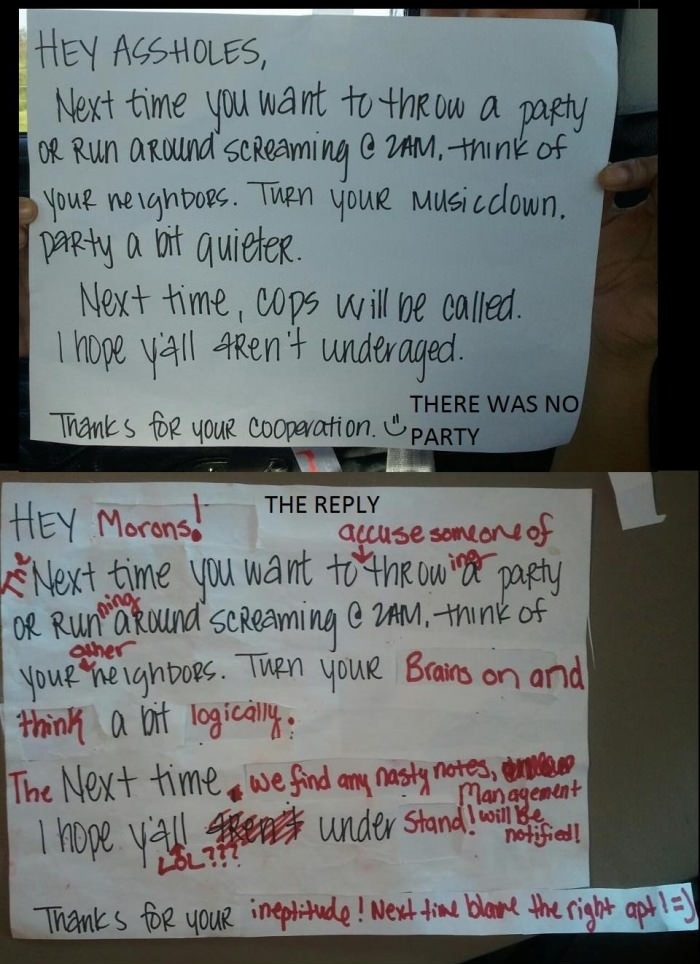 HEY ASSHOLES,
Next time you want to throw a party
OR Run around screaming @ 2AM, think of
your neighbors. Turn your music down.
party a bit quieter.
Next time, cops will be called.
I hope y'all aren't underaged.
Thanks for your cooperation.
THERE WAS NO
PARTY
THE REPLY
HEY Morons!
accuse someone of
The Next time you want to throwing a party
OR Running around screaming @ 2AM, think of
your other neighbors. Turn your Brains on and
think a bit logically.
The Next time, we find any nasty notes,
Management
I hope y'all aren't under stand! will be
notified!
LOL???
Thanks for your ineptitude! Next time blame the right apt! =)